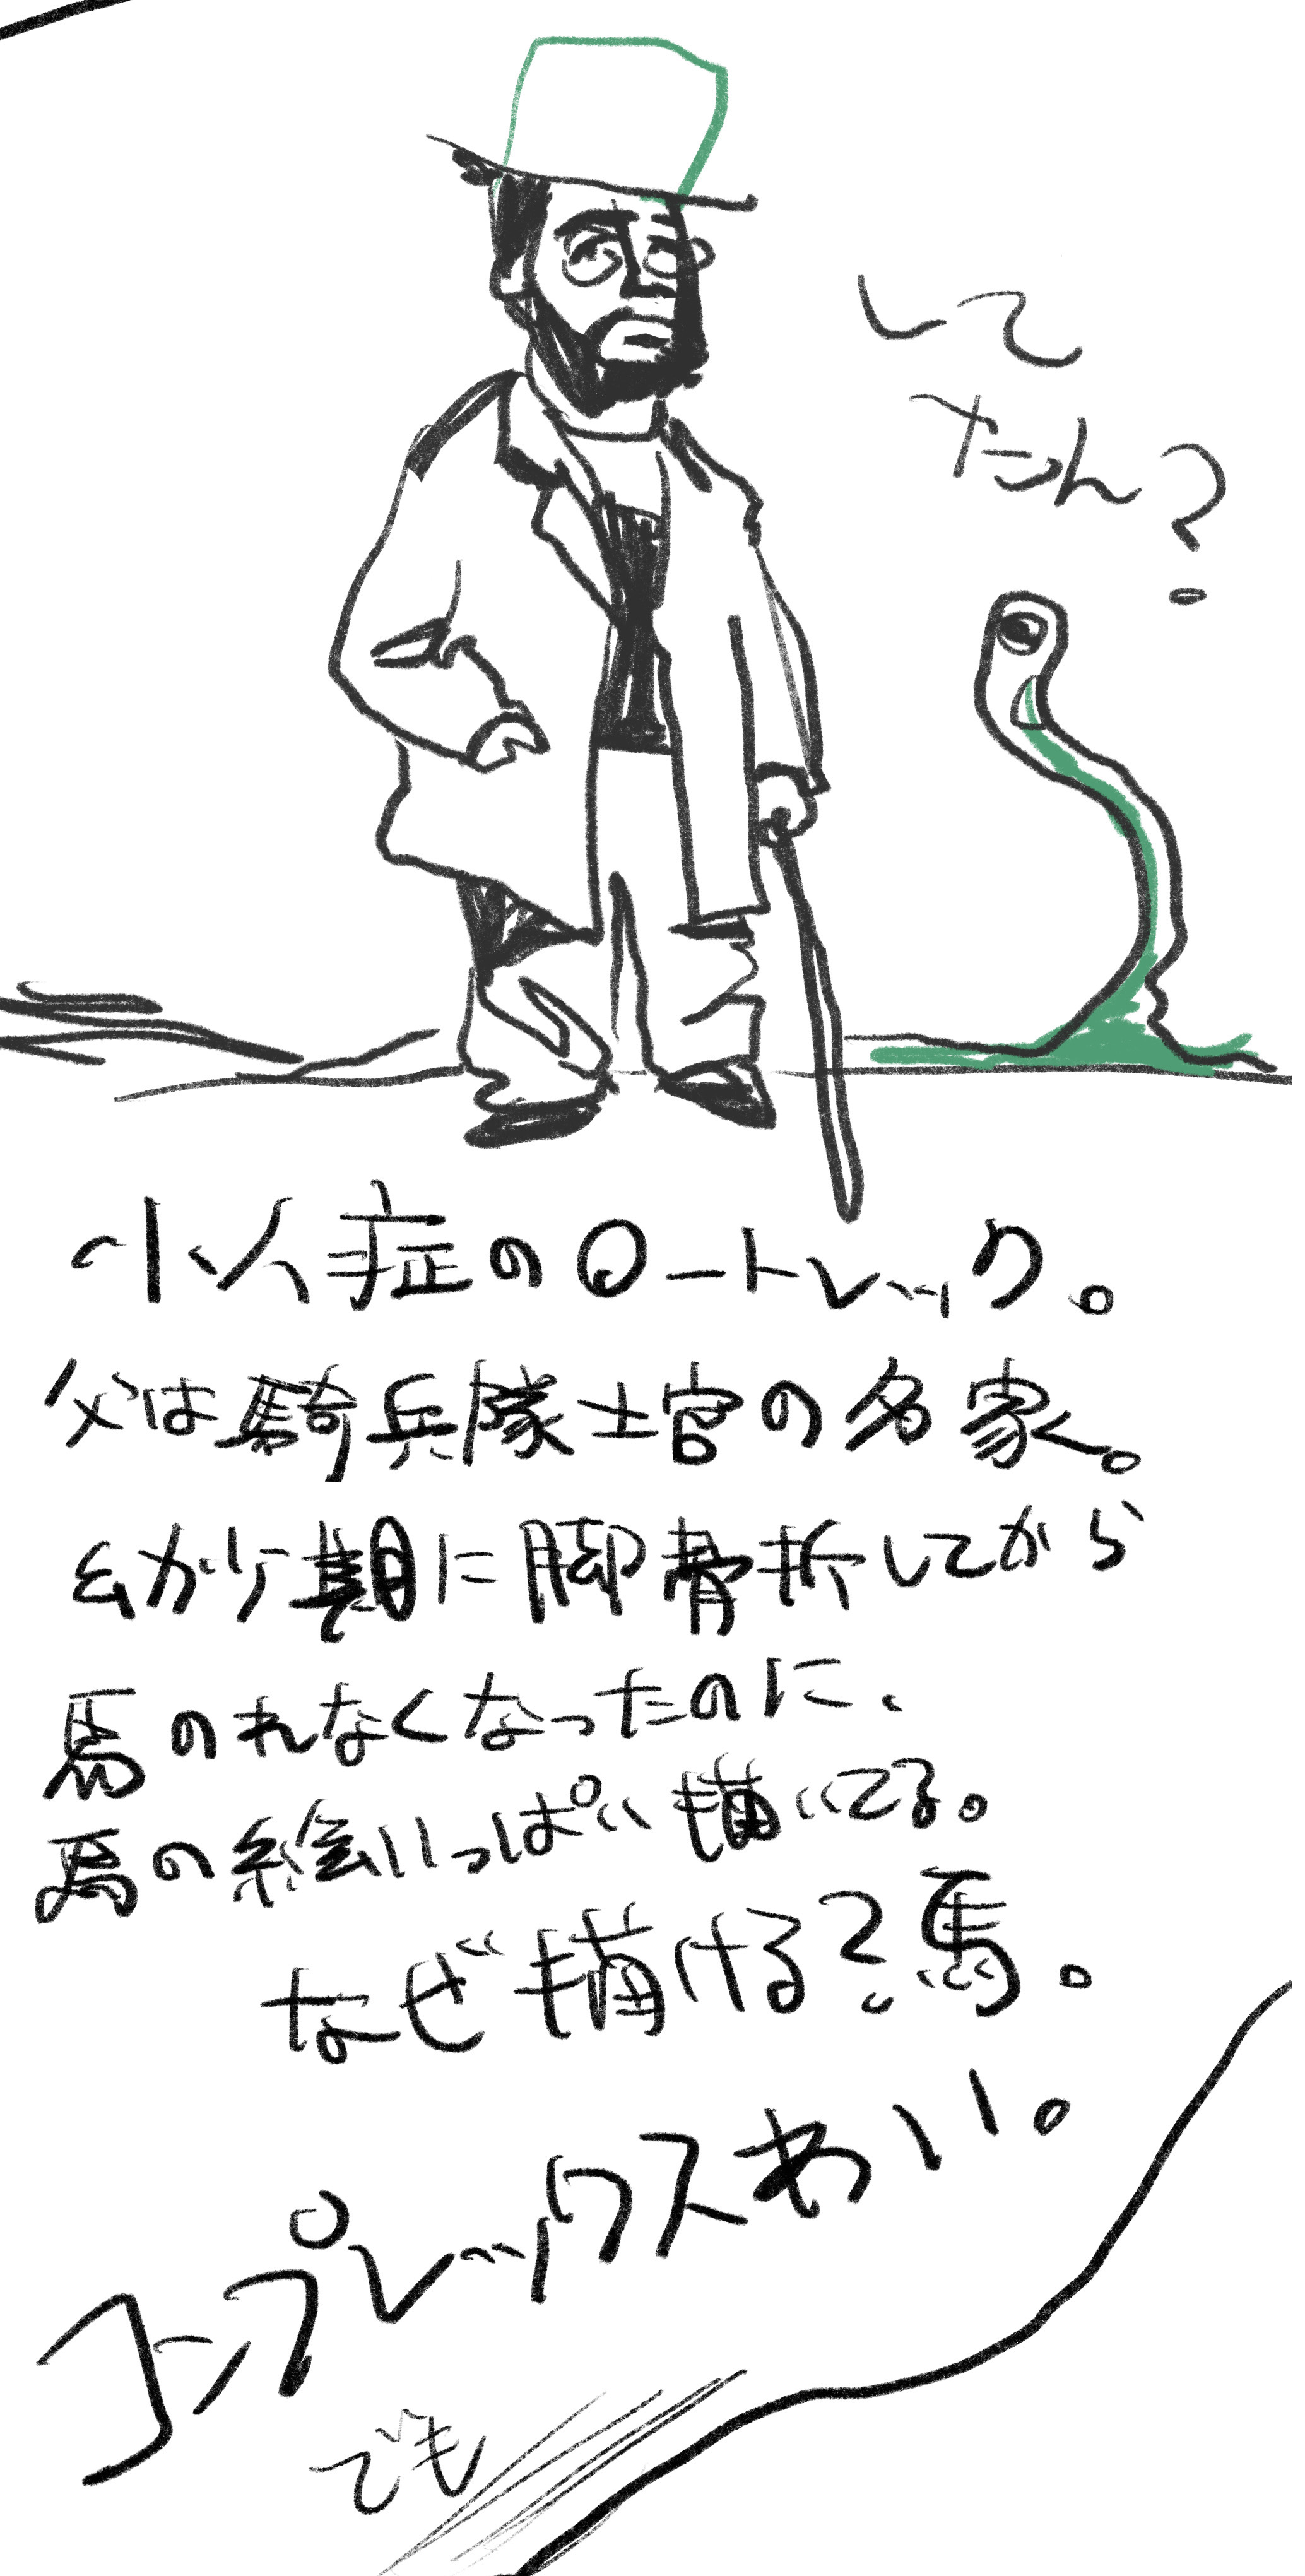 して
たっん?
小人症のロートレック。
父は騎兵隊士官の名家。
幼少期に脚骨折してから
馬のれなくなったのに、
馬の絵いっぱい描いてる。
なぜ描ける?馬。
コンプレックスあい。
でも